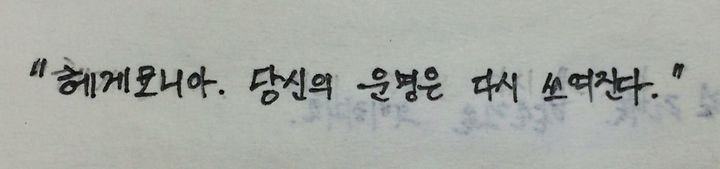 "헤게모니아. 당신의 운명은 다시 쓰여진다."